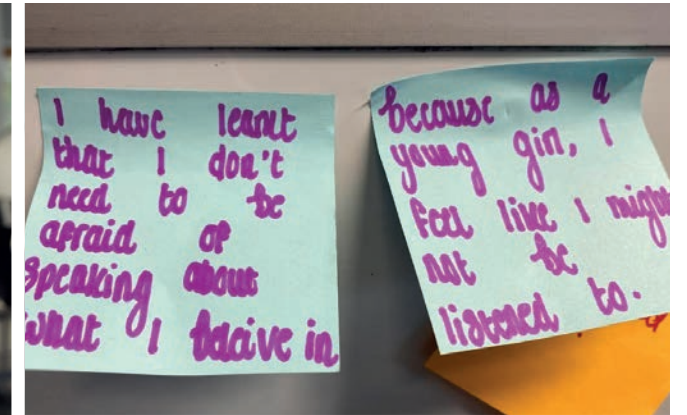 I have learnt
that I don't
need to be
afraid of
speaking about
what I beleive in
because as a
young girl, I
feel like I might
not be
listened to.